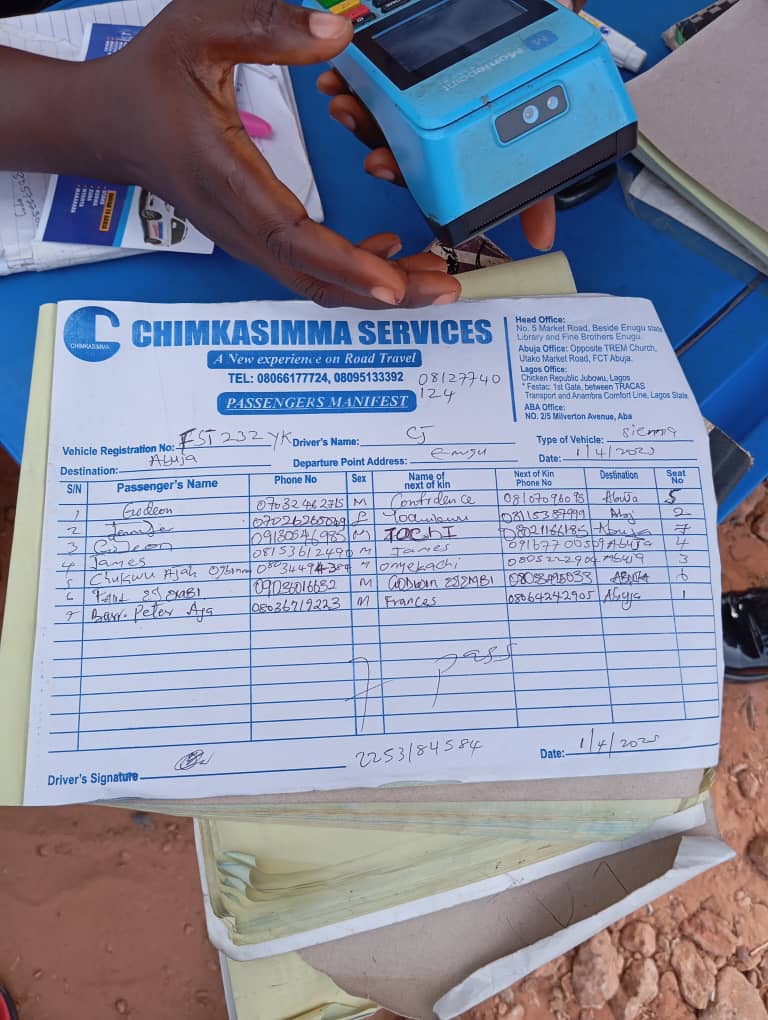 Moniepoint
CHIMKASIMMA
CHIMKASIMMA SERVICES
A New experience on Road Travel
TEL: 08066177724, 08095133392
08127740
124
PASSENGERS MANIFEST
Head Office:
No. 5 Market Road, Beside Enugu state
Library and Fine Brothers Enugu.
Abuja Office: Opposite TREM Church,
Utako Market Road, FCT Abuja.
Lagos Office:
Chicken Republic Jubowu, Lagos
* Festac: 1st Gate, between TRACAS
Transport and Anambra Comfort Line, Lagos State
ABA Office:
NO. 2/5 Milverton Avenue, Aba
Vehicle Registration No: FST 232 YK Driver's Name: CJ Type of Vehicle: sienna
Destination: Abuja Departure Point Address: enugu Date: 1/4/2025
S/N Passenger's Name Phone No Sex Name of next of kin Next of Kin Phone No Destination Seat No
1 Godeon 07032462715 M Confidence 08107096095 Abuja 5
2 07026265049 F 08115387999 Abj 2
3 Gideon 09130541985 M TOCHI 08021166185 Abuja 7
4 James 08153612490 M James Abuja 4
5 Chukwu Ajah M onyekachi Abuja 3
6 09036016632 M ABUJA 6
7 Barr. Peter Aja 08036719223 M Frances 08064242905 Abuja 1
7 pass
Driver's Signature 2253/84584 Date: 1/4/2025